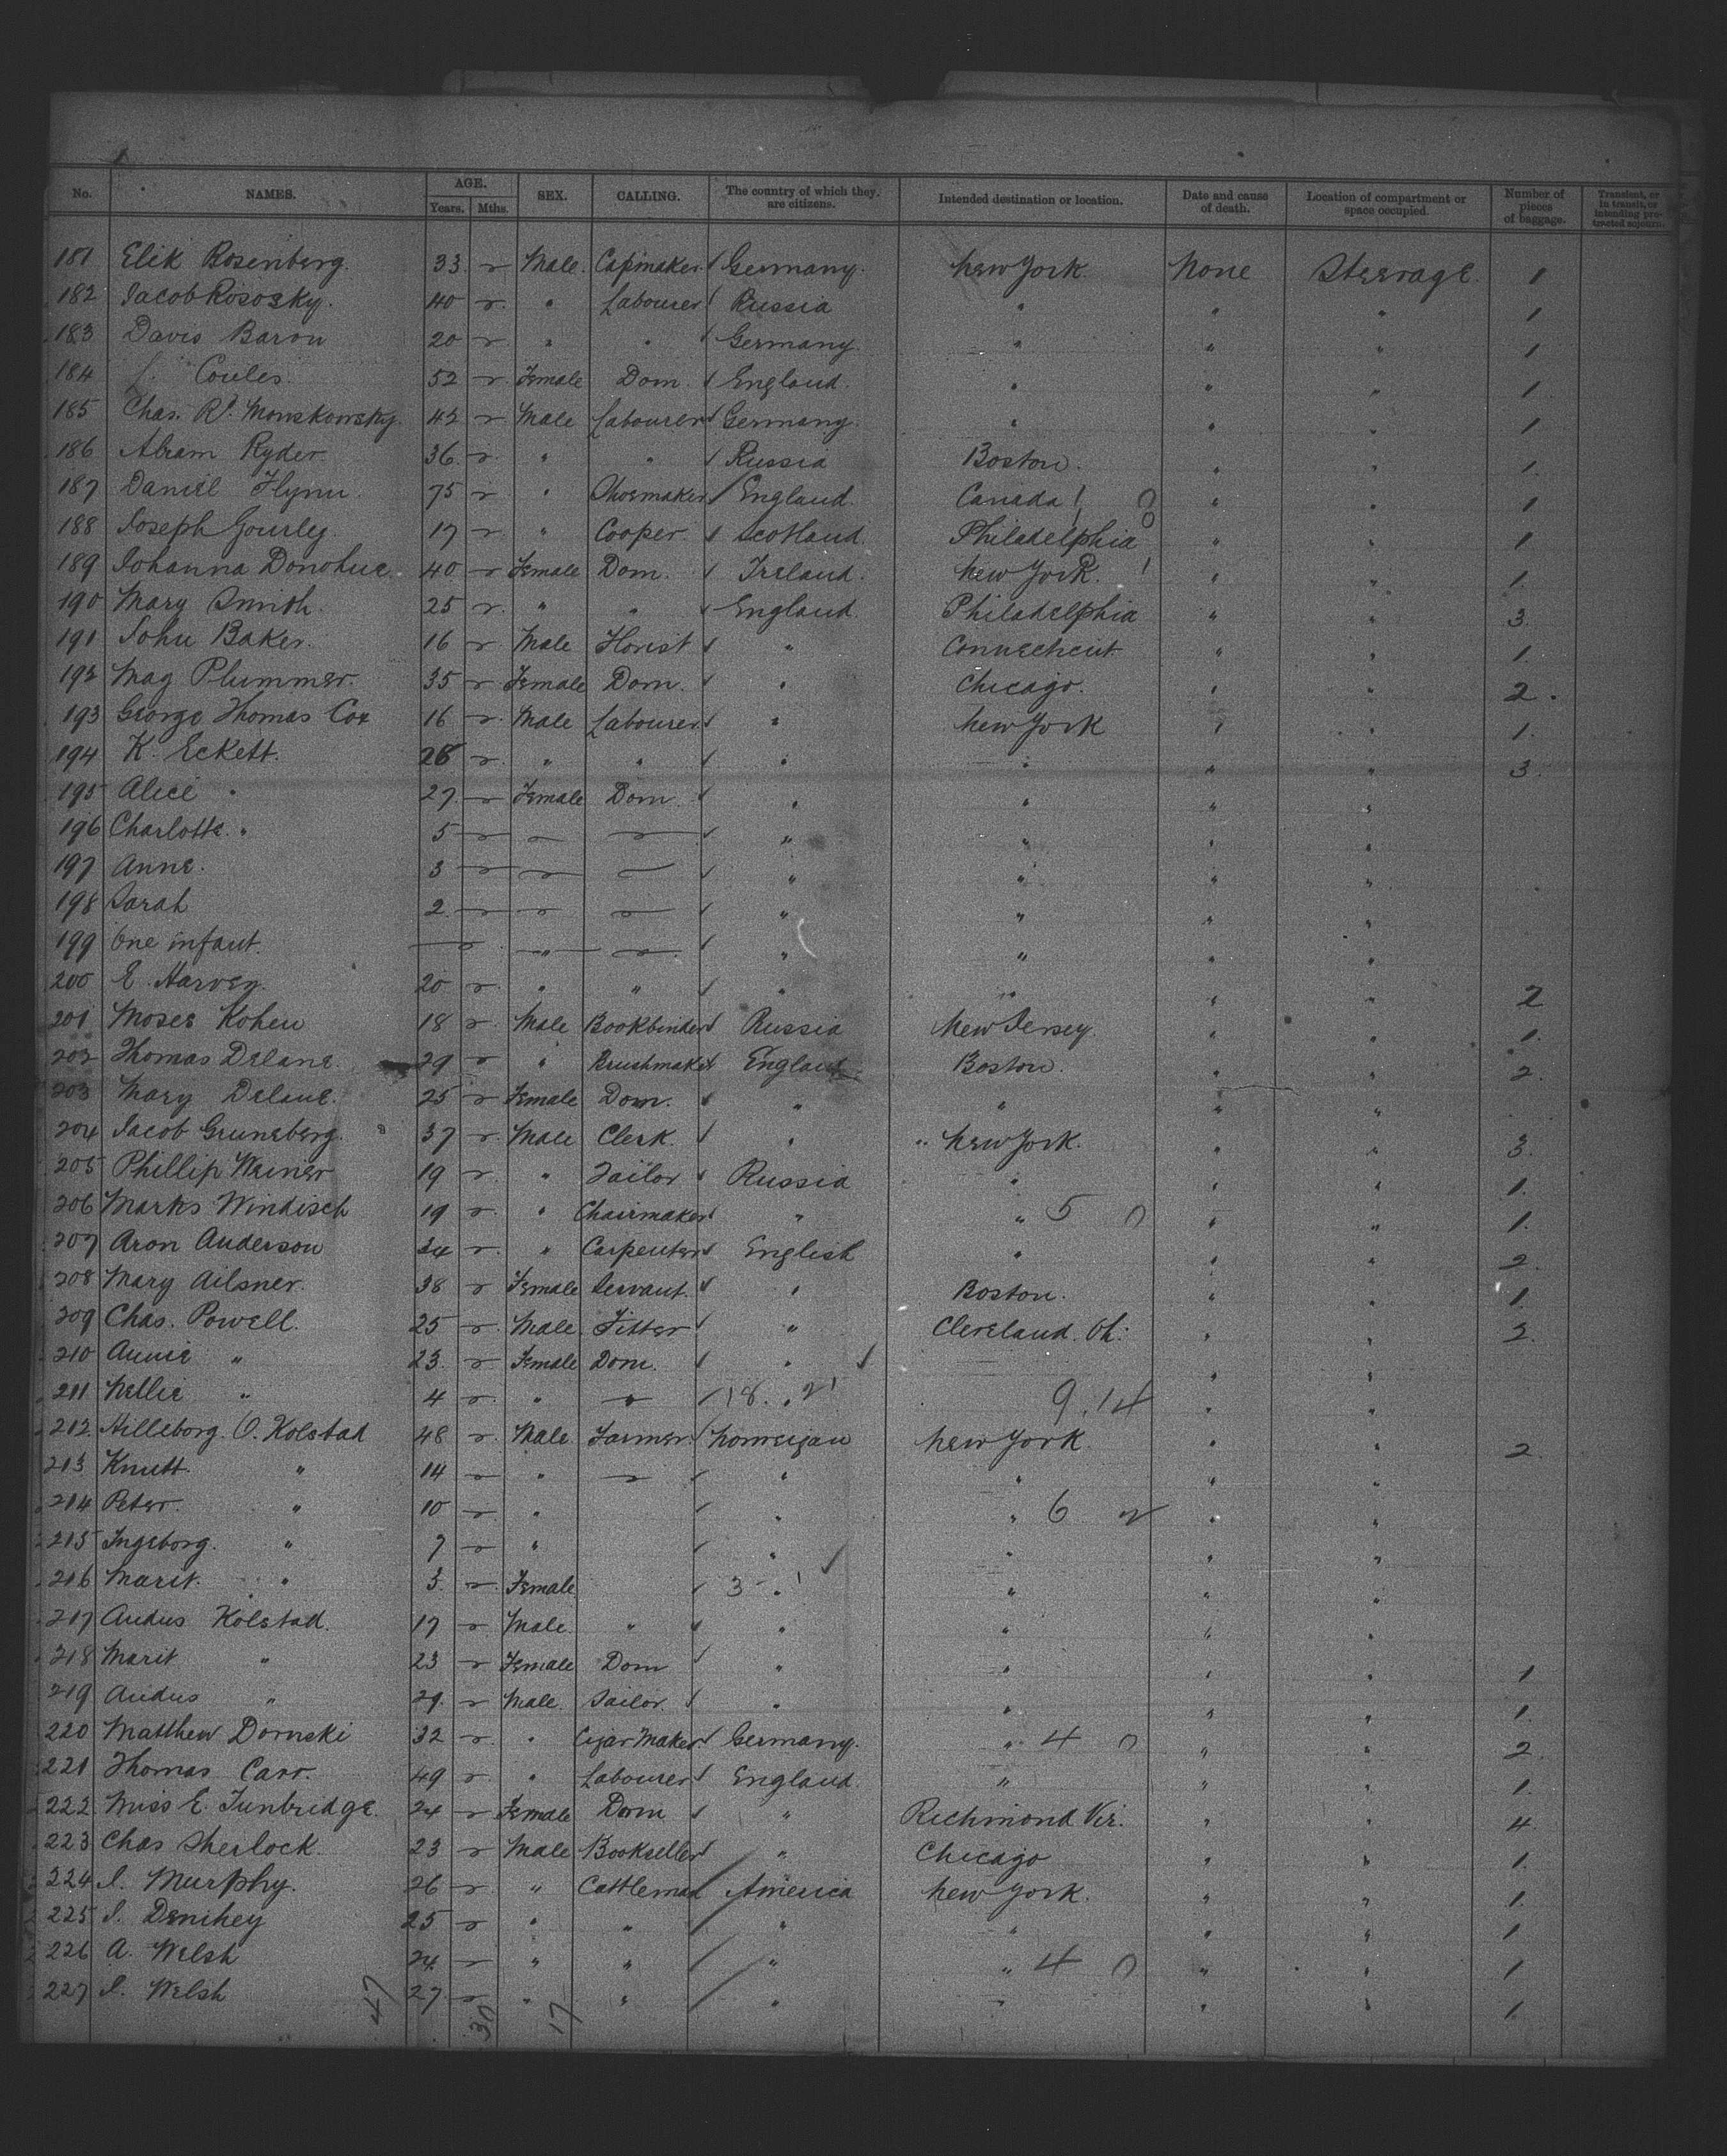 No. NAMES. AGE. Years. Mths. SEX. CALLING. The country of which they are citizens. Intended destination or location. Date and cause of death. Location of compartment or space occupied. Number of pieces of baggage. Transient, or in transit, or intending protracted sojourn.
181 Elik Rosenberg. 33. Male. Capmaker Germany. New York. None Steerage. 1
182 Jacob Rososky. 40 " Labourer Russia " " " 1
183 Davis Baron 20 " " Germany. " " " 1
184 Coules. 52 Female Dom. England. " " " 1
185 Chas. R. Monskowsky. 42 Male Labourer Germany. " " " 1
186 Abram Ryder. 36. " " Russia Boston. " " 1.
187 Daniel Flynn. 75 " Shoemaker England. Canada " " 1
188 Joseph Gourley. 17 " Cooper. Scotland. Philadelphia " " 1
189 Johanna Donohue. 40 Female Dom. Ireland. New York. " " 1.
190 Mary Smith. 25 " " England. Philadelphia " " 3.
191 John Baker. 16 Male Florist " Connecticut " " 1.
192 Mag Plummer. 35 Female Dom. " Chicago. " " 2.
193 George Thomas Cox 16 Male Labourer " New York " " 1.
194 K. Eckett. 28 " " " " " " 3.
195 Alice " 27 Female Dom. " " " "
196 Charlotte. " 5 " " " "
197 Anne. 3 " " " "
198 Sarah 2 " " " "
199 One infant. " " " " "
200 E. Harvey. 20 " " " " " " 2
201 Moses Kohen 18 Male Bookbinder Russia New Jersey. " " 1.
202 Thomas Delane. 29 " Brushmaker England Boston. " " 2.
203 Mary Delane. 25 Female Dom. " " " "
204 Jacob Gruneberg. 37 Male Clerk. " New York. " " 3.
205 Phillip Weiner 19 " Tailor Russia " " " 1.
206 Marks Windisch 19 " Chairmaker " " 5 0 " " 1.
207 Aron Anderson 34 " Carpenter English " " " 2.
208 Mary Ailsner. 38 Female Servant. " Boston. " " 1.
209 Chas. Powell. 25 Male. Fitter " Cleveland. Oh. " " 2.
210 Annie " 23. Female Dom. " " "
211 Nellie " 4 " 18. 9.14 " "
212. Hilleborg. O. Kolstad 48 Male. Farmer. Norweigan New York. " " 2.
213 Knutt. " 14 " " " " "
214 Peter. " 10 " " " 6 " "
215 Ingeborg. " 7 " " " " "
216 Marit. " 3. Female 3 " " "
217 Andus Kolstad. 17 Male. " " " " "
218 Marit " 23 Female Dom " " " " 1
219 Andus " 29. Male. Sailor. " " " " 1.
220 Matthew Dornski 32 " Cigar Maker. Germany. " 4 0 " " 2.
221 Thomas Carr. 49 " Labourer England. " " " 1.
222 Miss E. Tunbridge. 24 Female Dom " Richmond Vir. " " 4.
223 Chas Sherlock. 23 Male Bookseller " Chicago " " 1.
224 J. Murphy. 26 " Cattleman America New York. " " 1.
225 J. Denihey 25 " " " " " " 1
226 A. Welsh 24. " " " " 4 0 " " 1
227 J. Welsh 27 " " " " " " 1.
47 30 17